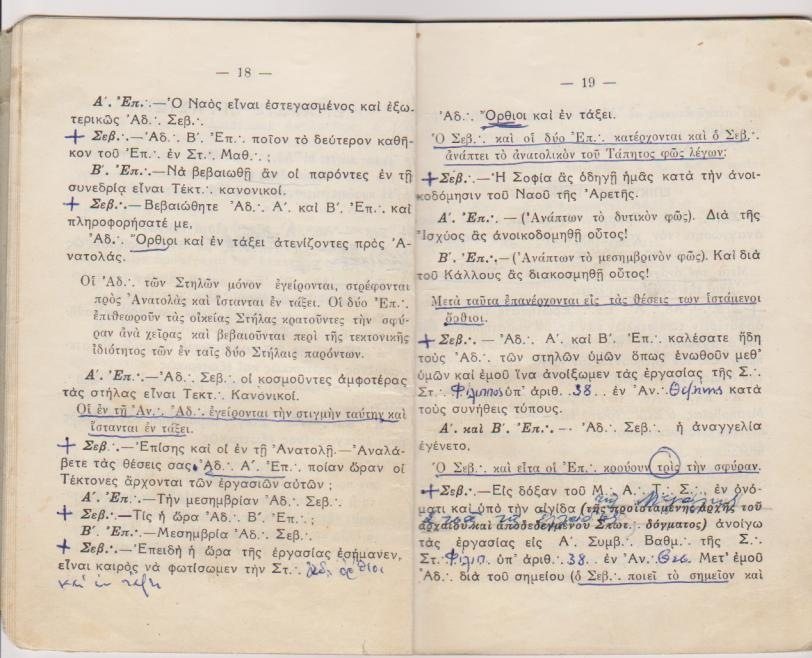 — 18 —
Α΄. Ἐπ.·.—Ὁ Ναὸς εἶναι ἐστεγασμένος καὶ ἐξω-
τερικῶς Ἀδ.·. Σεβ.·.
+ Σεβ.·.—Ἀδ.·. Β΄. Ἐπ.·. ποῖον τὸ δεύτερον καθῆ-
κον τοῦ Ἐπ.·. ἐν Στ.·. Μαθ.·. ;
Β΄. Ἐπ.·.—Νὰ βεβαιωθῇ ἂν οἱ παρόντες ἐν τῇ
συνεδρίᾳ εἶναι Τέκτ.·. κανονικοί.
+ Σεβ.·.—Βεβαιώθητε Ἀδ.·. Α΄. καὶ Β΄. Ἐπ.·. καὶ
πληροφορήσατέ με,
Ἀδ.·. Ὄρθιοι καὶ ἐν τάξει ἀτενίζοντες πρὸς Ἀ-
νατολάς.
Οἱ Ἀδ.·. τῶν Στηλῶν μόνον ἐγείρονται, στρέφονται
πρὸς Ἀνατολὰς καὶ ἵστανται ἐν τάξει. Οἱ δύο Ἐπ.·.
ἐπιθεωροῦν τὰς οἰκείας Στήλας κρατοῦντες τὴν σφῦ-
ραν ἀνὰ χεῖρας καὶ βεβαιοῦνται περὶ τῆς τεκτονικῆς
ἰδιότητος τῶν ἐν ταῖς δύο Στήλαις παρόντων.
Α΄. Ἐπ.·.—Ἀδ.·. Σεβ.·. οἱ κοσμοῦντες ἀμφοτέρας
τὰς στήλας εἶναι Τεκτ.·. Κανονικοί.
Οἱ ἐν τῇ Ἀν.·. Ἀδ.·. ἐγείρονται τὴν στιγμὴν ταύτην καὶ
ἵστανται ἐν τάξει.
+ Σεβ.·.—Ἐπίσης καὶ οἱ ἐν τῇ Ἀνατολῇ.—Ἀναλά-
βετε τὰς θέσεις σας. Ἀδ.·. Α΄. Ἐπ.·. ποίαν ὥραν οἱ
Τέκτονες ἄρχονται τῶν ἐργασιῶν αὐτῶν ;
Α΄. Ἐπ.·.—Τὴν μεσημβρίαν Ἀδ.·. Σεβ.·.
+ Σεβ.·.—Τίς ἡ ὥρα Ἀδ.·. Β΄. Ἐπ.·. ;
Β΄. Ἐπ.·.—Μεσημβρία Ἀδ.·. Σεβ.·.
+ Σεβ.·.—Ἐπειδὴ ἡ ὥρα τῆς ἐργασίας ἐσήμανεν,
εἶναι καιρὸς νὰ φωτίσωμεν τὴν Στ.·. Ἀδ. ὄρθιοι
καὶ ἐν τάξει
— 19 —
Ἀδ.·. Ὄρθιοι καὶ ἐν τάξει.
Ὁ Σεβ.·. καὶ οἱ δύο Ἐπ.·. κατέρχονται καὶ ὁ Σεβ.·.
ἀνάπτει τὸ ἀνατολικὸν τοῦ Τάπητος φῶς λέγων:
+ Σεβ.·.—Ἡ Σοφία ἂς ὁδηγῇ ἡμᾶς κατὰ τὴν ἀνοι-
κοδόμησιν τοῦ Ναοῦ τῆς Ἀρετῆς.
Α΄. Ἐπ.·. — (Ἀνάπτων τὸ δυτικὸν φῶς). Διὰ τῆς
Ἰσχύος ἂς ἀνοικοδομηθῇ οὗτος!
Β΄. Ἐπ.·.—(Ἀνάπτων τὸ μεσημβρινὸν φῶς). Καὶ διὰ
τοῦ Κάλλους ἂς διακοσμηθῇ οὗτος!
Μετὰ ταῦτα ἐπανέρχονται εἰς τὰς θέσεις των ἱστάμενοι
ὄρθιοι.
+ Σεβ.·. — Ἀδ.·. Α΄. καὶ Β΄. Ἐπ.·. καλέσατε ἤδη
τοὺς Ἀδ.·. τῶν στηλῶν ὑμῶν ὅπως ἑνωθοῦν μεθ᾽
ὑμῶν καὶ ἐμοῦ ἵνα ἀνοίξωμεν τὰς ἐργασίας τῆς Σ.·.
Στ.·. Φίλιππος ὑπ᾽ ἀριθ. 38 .. ἐν Ἀν.·. Θεσ/νίκης κατὰ
τοὺς συνήθεις τύπους.
Α΄. καὶ Β΄. Ἐπ.·. — Ἀδ.·. Σεβ.·. ἡ ἀναγγελία
ἐγένετο,
Ὁ Σεβ.·. καὶ εἶτα οἱ Ἐπ.·. κρούουν τρὶς τὴν σφῦραν.
+ Σεβ.·.—Εἰς δόξαν τοῦ Μ.·. Α.·. Τ.·. Σ.·. ἐν ὀνό-
ματι καὶ ὑπὸ τὴν αἰγίδα (τῆς προϊσταμένης ἀρχῆς τοῦ
ἀρχαίου καὶ ἀποδεδεγμένου Σκωτ.·. δόγματος) ἀνοίγω
τὰς ἐργασίας εἰς Α΄. Συμβ.·. Βαθμ.·. τῆς Σ.·.
Στ.·. Φίλιπ. ὑπ᾽ ἀριθ. 38.. ἐν Ἀν.·. Θεσ. Μετ᾽ ἐμοῦ
Ἀδ.·. διὰ τοῦ σημείου (ὁ Σεβ.·. ποιεῖ τὸ σημεῖον καὶ